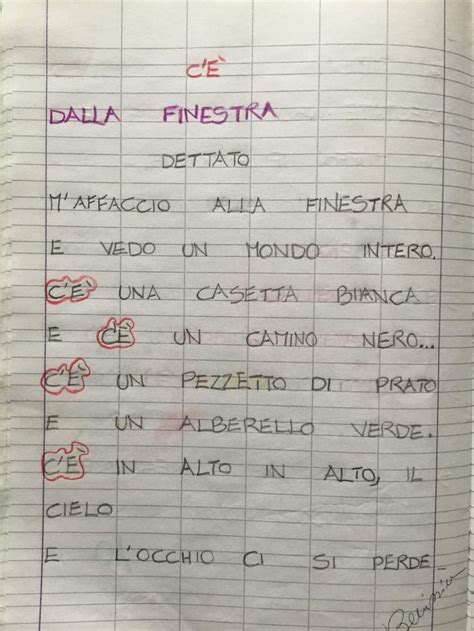 C'È
DALLA FINESTRA
DETTATO
M'AFFACCIO ALLA FINESTRA
E VEDO UN MONDO INTERO.
C'È UNA CASETTA BIANCA
E C'È UN CAMINO NERO...
C'È UN PEZZETTO DI PRATO
E UN ALBERELLO VERDE.
C'È IN ALTO IN ALTO, IL
CIELO
E L'OCCHIO CI SI PERDE